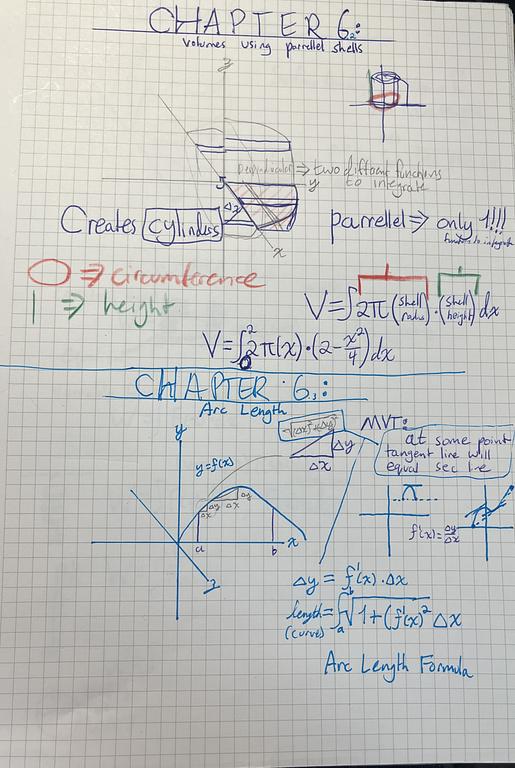 CHAPTER 6.2:
Volumes using parrellel shells
z
perpendicular => two different functions
to integrate
y
Δz
x
Creates cylinders
parrellel => only 1!!!
function to integrate
O => circumference
| => height
V=∫2π(shell radius)·(shell height)dx
V=∫₀²2π(x)·(2-x²/4)dx
CHAPTER 6.3:
Arc Length
√(Δx)²+(Δy)²
MVT:
at some point
tangent line will
equal sec line
Δy
Δx
y
y=f(x)
Δy
Δx
Δy
Δx
a
b
x
z
f'(x)=Δy/Δx
Δy = f'(x)·Δx
length (curve)=∫ₐᵇ√1+(f'(x))² Δx
Arc Length Formula